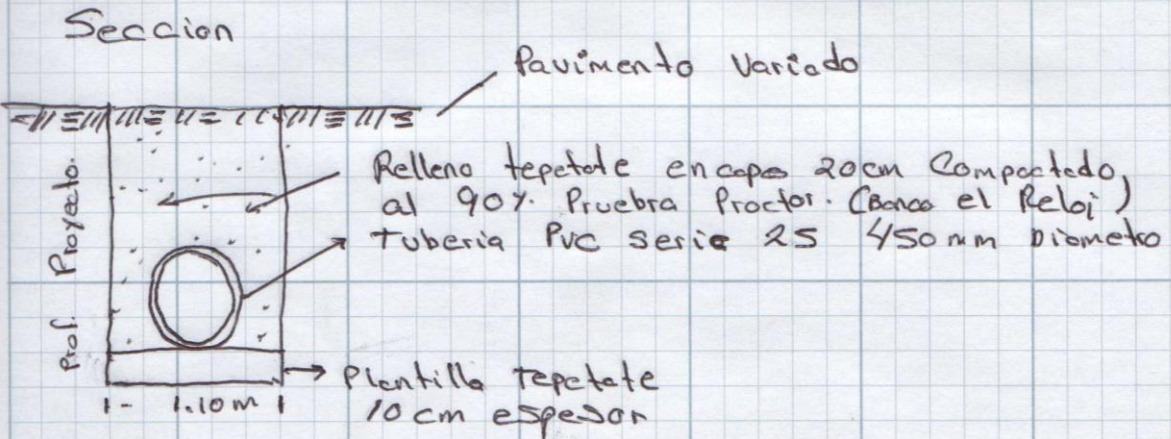 Seccion
Pavimento Variado
Relleno tepetate en capa 20cm Compactado,
al 90%. Pruebra Proctor. (Banco el Reloj)
Tuberia PVC serie 25 450mm Diametro
Prof. Proyecto.
Plantilla Tepetate
10 cm espesor
1.10m